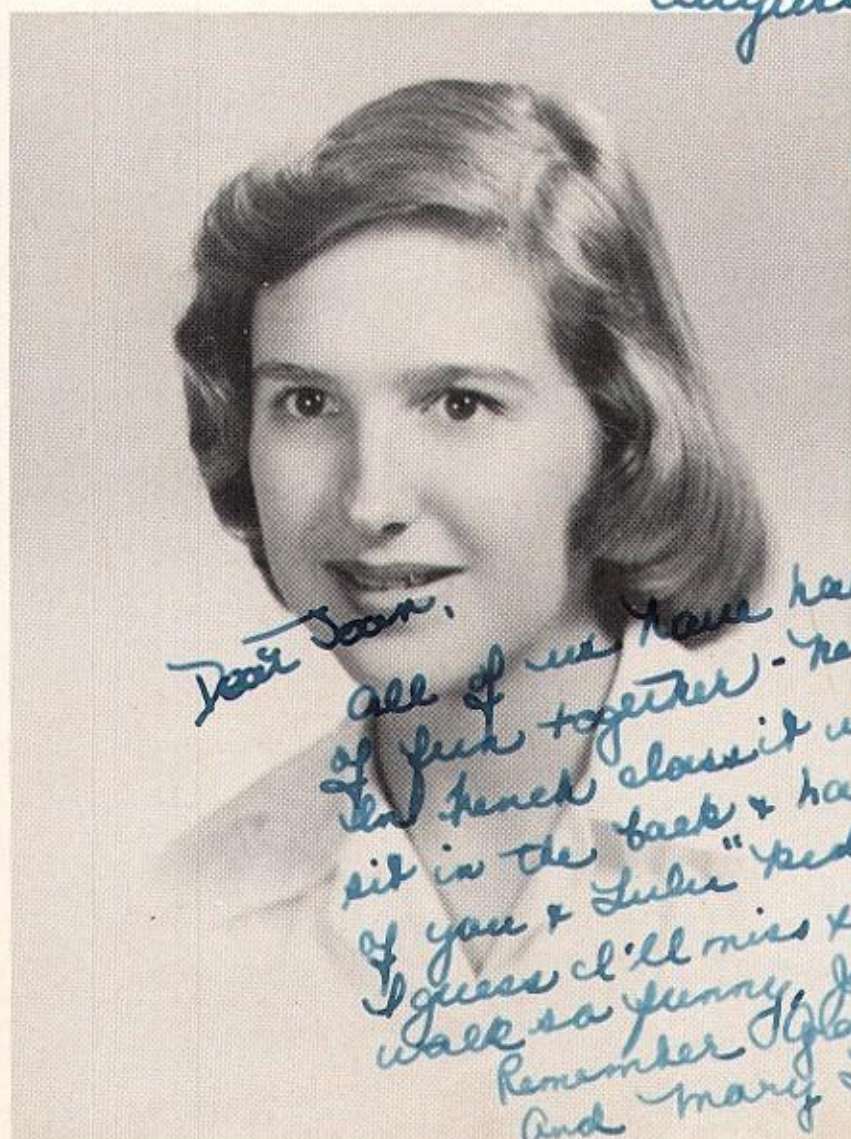 Dear Joan,
all of us have ha
of fun together - he
In French class it w
sit in the back & ha
of you & Lulu "
I guess I'll miss
walk so funny. J
Remember
And Mary